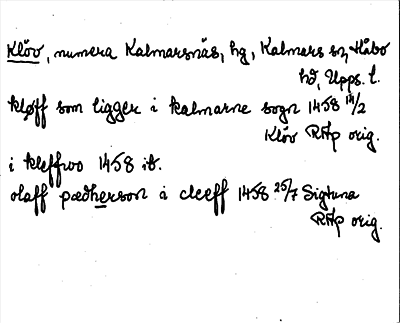 Klöv, numera Kalmarsnäs, hg, Kalmars sn, Håbo
hd, Upps. l.
kløff som ligger i kalmarne sogn 1458 14/2
Klöv RAp orig.
i kleffwo 1458 ib.
olaff pædherson a cleeff 1458 25/7 Sigtuna
RAp orig.